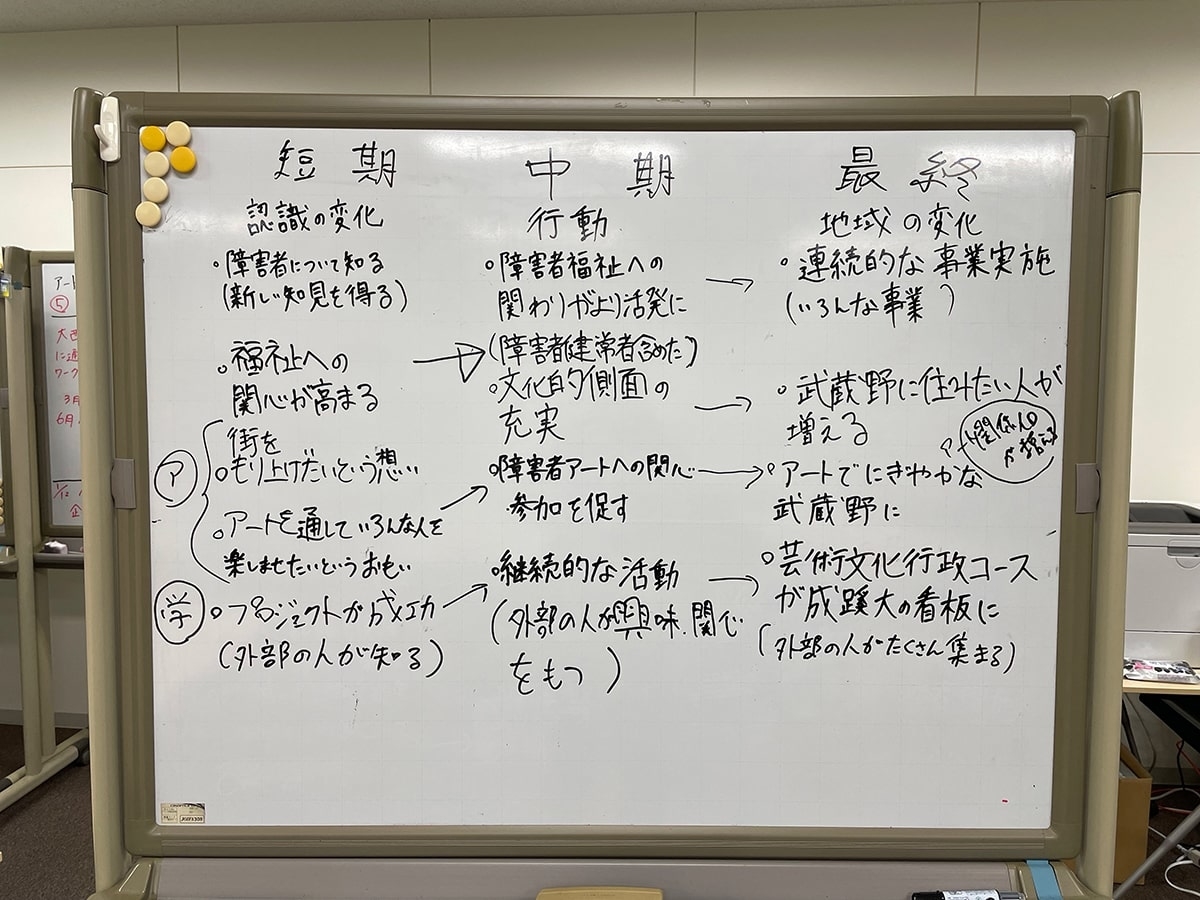 短期
認識の変化
・障害者について知る
(新しい知見を得る)
・福祉への
関心が高まる
ア
街を
・もり上げたいという想い
・アートを通していろんな人を
楽しませたいというおもい
学
・プロジェクトが成功
(外部の人が知る)
中期
行動
・障害者福祉への
関わりがより活発に
(障害者健常者含めた)
・文化的側面の
充実
・障害者アートへの関心
参加を促す
・継続的な活動
(外部の人が興味、関心
をもつ)
最終
地域の変化
・連続的な事業実施
(いろんな事業)
・武蔵野に住みたい人が
増える
アート関係人口
が増える
・アートでにぎやかな
武蔵野に
・芸術文化行政コース
が成蹊大の看板に
(外部の人がたくさん集まる)
アート
⑤
大西
に通
ワーク
3月
6月
1/12
企